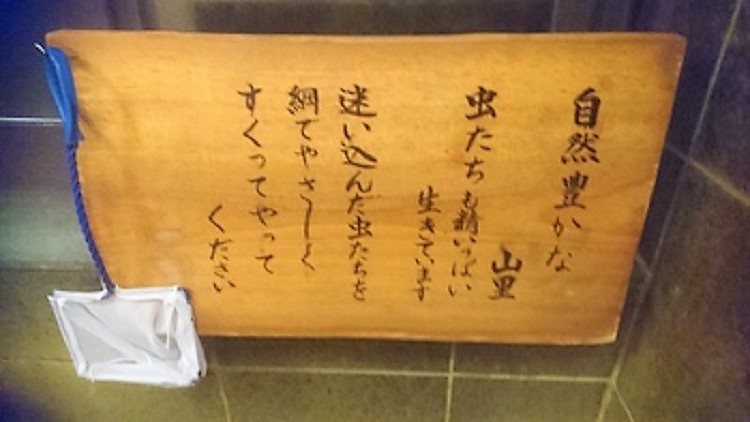 自然豊かな
山里
虫たちも精いっぱい
生きています
迷い込んだ虫たちを
網でやさしく
すくってやって
ください